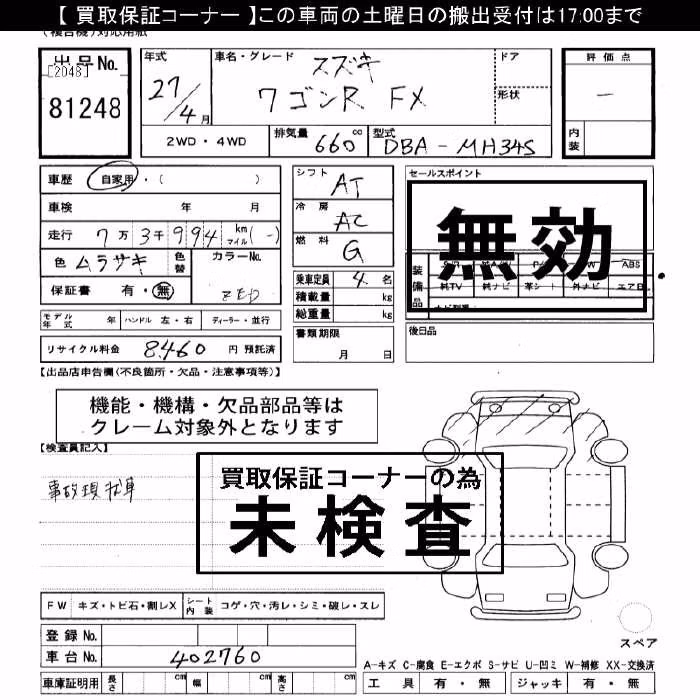 【 買取保証コーナー 】この車両の土曜日の搬出受付は17:00まで
出品No.
[2048]
81248
年式
27/4月
車名・グレード
スズキ
ワゴンR FX
ドア
形状
評価点
—
内装
2WD・4WD
排気量 660 cc
型式 DBA-MH34S
車歴 自家用・( )
車検 年 月
走行 7万3千994 km マイル (-)
色 ムラサキ 色替
カラーNo. ZED
保証書 有・無
シフト AT
冷房 AC
燃料 G
乗車定員 4名
積載量 kg
総重量 kg
書類期限
月 日
セールスポイント
無効
装備品
ABS
純TV 純ナビ 革シート 外ナビ エアB
後日品
モデル年式 年 ハンドル 左・右 ディーラー・並行
リサイクル料金 8460 円 預託済
【出品店申告欄(不良箇所・欠品・注意事項等)】
機能・機構・欠品部品等は
クレーム対象外となります
【検査員記入】
事故現状車
買取保証コーナーの為
未検査
FW キズ・トビ石・割レX シート内装 コゲ・穴・汚レ・シミ・破レ・スレ
登録No.
車台No. 402760
車庫証明用 長さ cm 幅 cm 高さ cm
スペア
A-キズ C-腐食 E-エクボ S-サビ U-凹ミ W-補修 XX-交換済
工具 有・無 ジャッキ 有・無